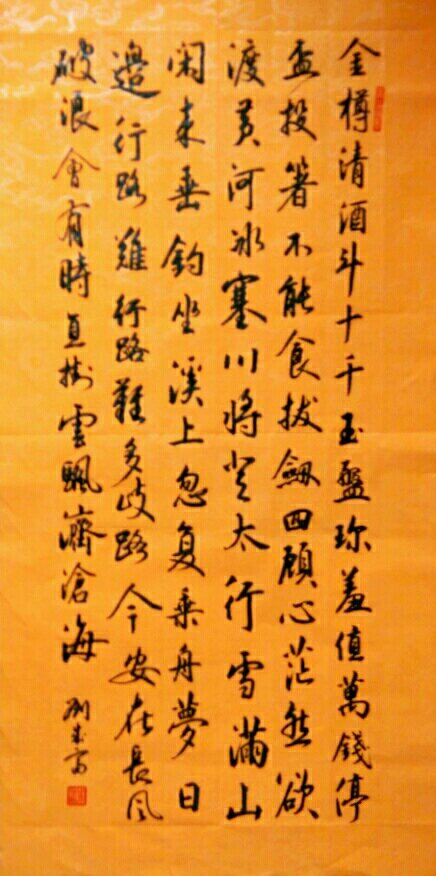 金樽清酒斗十千玉盤珍羞值萬錢停
盃投箸不能食拔劍四顧心茫然欲
渡黃河冰塞川將登太行雪滿山
閑來垂釣坐溪上忽复乘舟夢日
邊行路難行路難多歧路今安在長風
破浪會有時直掛雲颿濟滄海